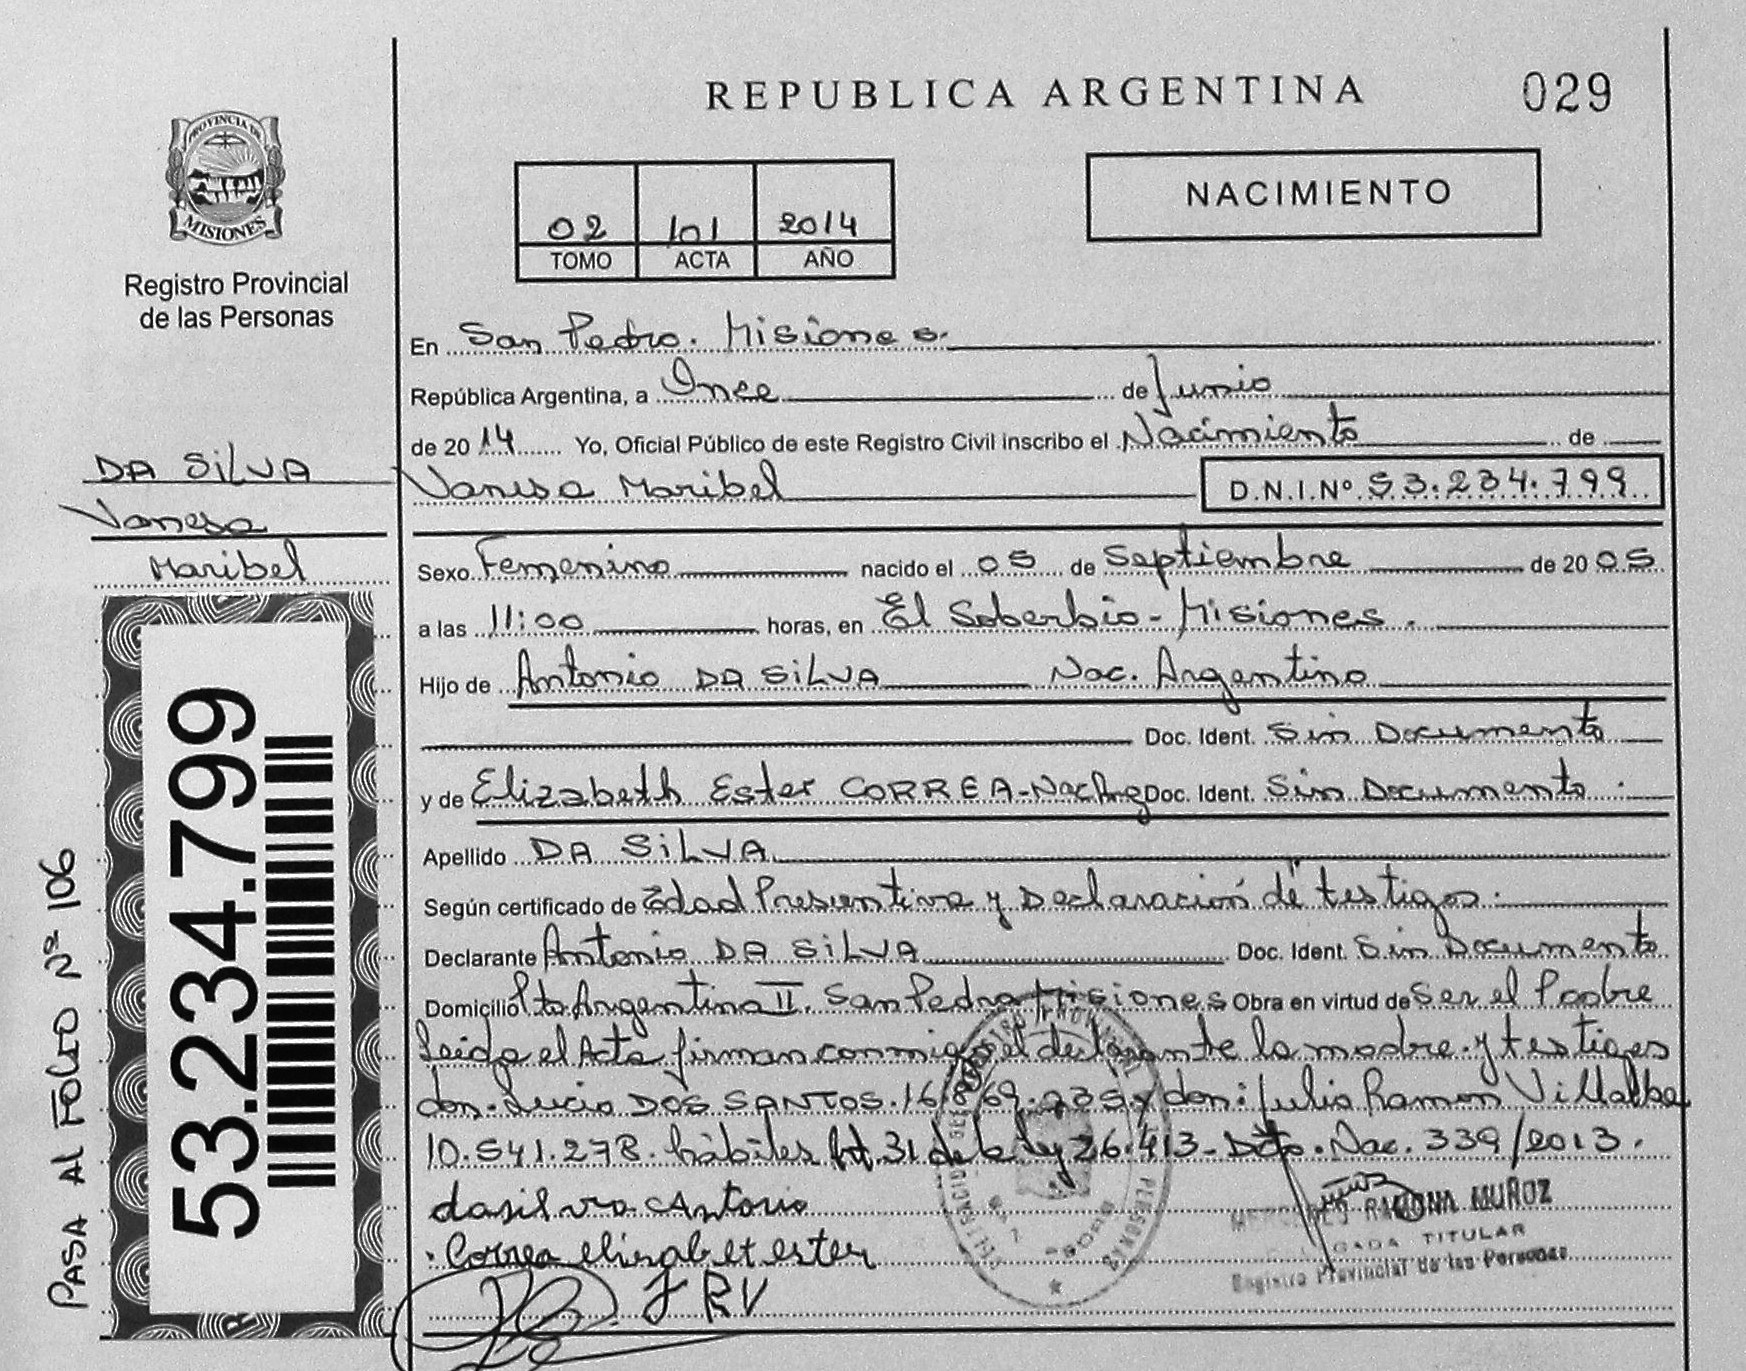 REPUBLICA ARGENTINA
029
PROVINCIA DE
MISIONES
Registro Provincial
de las Personas
02 101 2014
TOMO ACTA AÑO
NACIMIENTO
En San Pedro. Misiones.
República Argentina, a Once de Junio
de 2014 Yo, Oficial Público de este Registro Civil inscribo el Nacimiento de
Vanesa Maribel D.N.I.Nº 53.234.799
DA SiLVA
Vanesa
Maribel
Sexo Femenino nacido el 05 de Septiembre de 2005
a las 11:00 horas, en El Soberbio - Misiones.
Hijo de Antonio DA SiLVA Nac. Argentino
Doc. Ident. Sin Documento
y de Elizabeth Ester CORREA-Nac Arg Doc. Ident. Sin Documento.
Apellido DA SiLVA
Según certificado de Edad Presuntiva y Declaración de testigos.
Declarante Antonio DA SiLVA Doc. Ident. Sin Documento
Domicilio Pto Argentina II. San Pedro Misiones Obra en virtud de Ser el Padre
Leida el Acta firman conmigo el declarante la madre y testigos
don. Lucio DOS SANTOS. y don: Julio Ramon Villalba
10.541.278. hábiles Art. 31 de la ley 26.413- Dcto. Nac. 339/2013.
dasilva Antonio
Correa elisabet ester
JRV
MERCEDES RAMONA MUÑOZ
TITULAR
Registro Provincial de las Personas
53.234.799
PASA AL FOLIO Nº 106